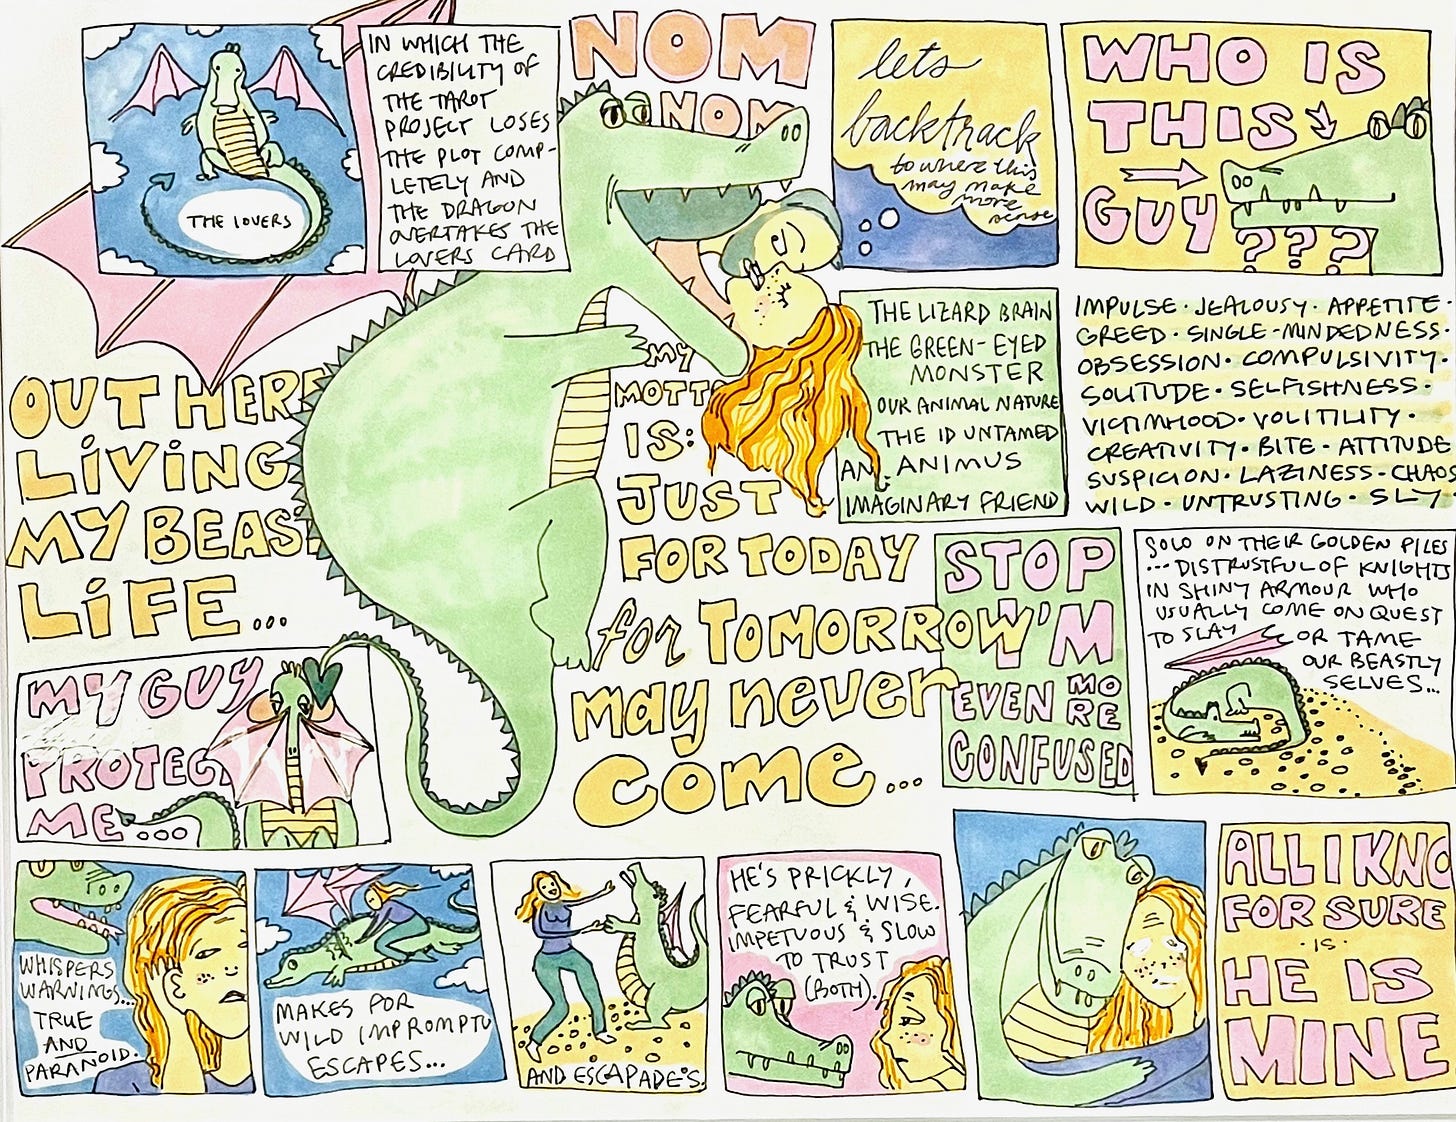 THE LOVERS
IN WHICH THE
CREDIBILITY OF
THE TAROT
PROJECT LOSES
THE PLOT COMP-
LETELY AND
THE DRAGON
OVERTAKES THE
LOVERS CARD
NOM
NOM
lets
backtrack
to where this
may make
more
sense
WHO IS
THIS
GUY
???
OUT HERE
LIVING
MY BEAST
LIFE...
MY
MOTTO
IS:
JUST
FOR TODAY
for TOMORROW
may never
come...
THE LIZARD BRAIN
THE GREEN-EYED
MONSTER
OUR ANIMAL NATURE
THE ID UNTAMED
AN ANIMUS
IMAGINARY FRIEND
IMPULSE · JEALOUSY · APPETITE ·
GREED · SINGLE-MINDEDNESS ·
OBSESSION · COMPULSIVITY ·
SOLITUDE · SELFISHNESS ·
VICTIMHOOD · VOLITILITY ·
CREATIVITY · BITE · ATTITUDE
SUSPICION · LAZINESS - CHAOS
WILD · UNTRUSTING · SLY
STOP
I'M
EVEN MORE
CONFUSED
SOLO ON THEIR GOLDEN PILES
... DISTRUSTFUL OF KNIGHTS
IN SHINY ARMOUR WHO
USUALLY COME ON QUEST
TO SLAY OR TAME
OUR BEASTLY
SELVES...
MY GUY
PROTECTS
ME...
WHISPERS
WARNINGS...
TRUE
AND
PARANOID.
MAKES FOR
WILD IMPROMPTU
ESCAPES...
AND ESCAPADE'S.
HE'S PRICKLY,
FEARFUL & WISE.
IMPETUOUS & SLOW
TO TRUST
(BOTH).
ALL I KNO
FOR SURE
·IS·
HE IS
MINE